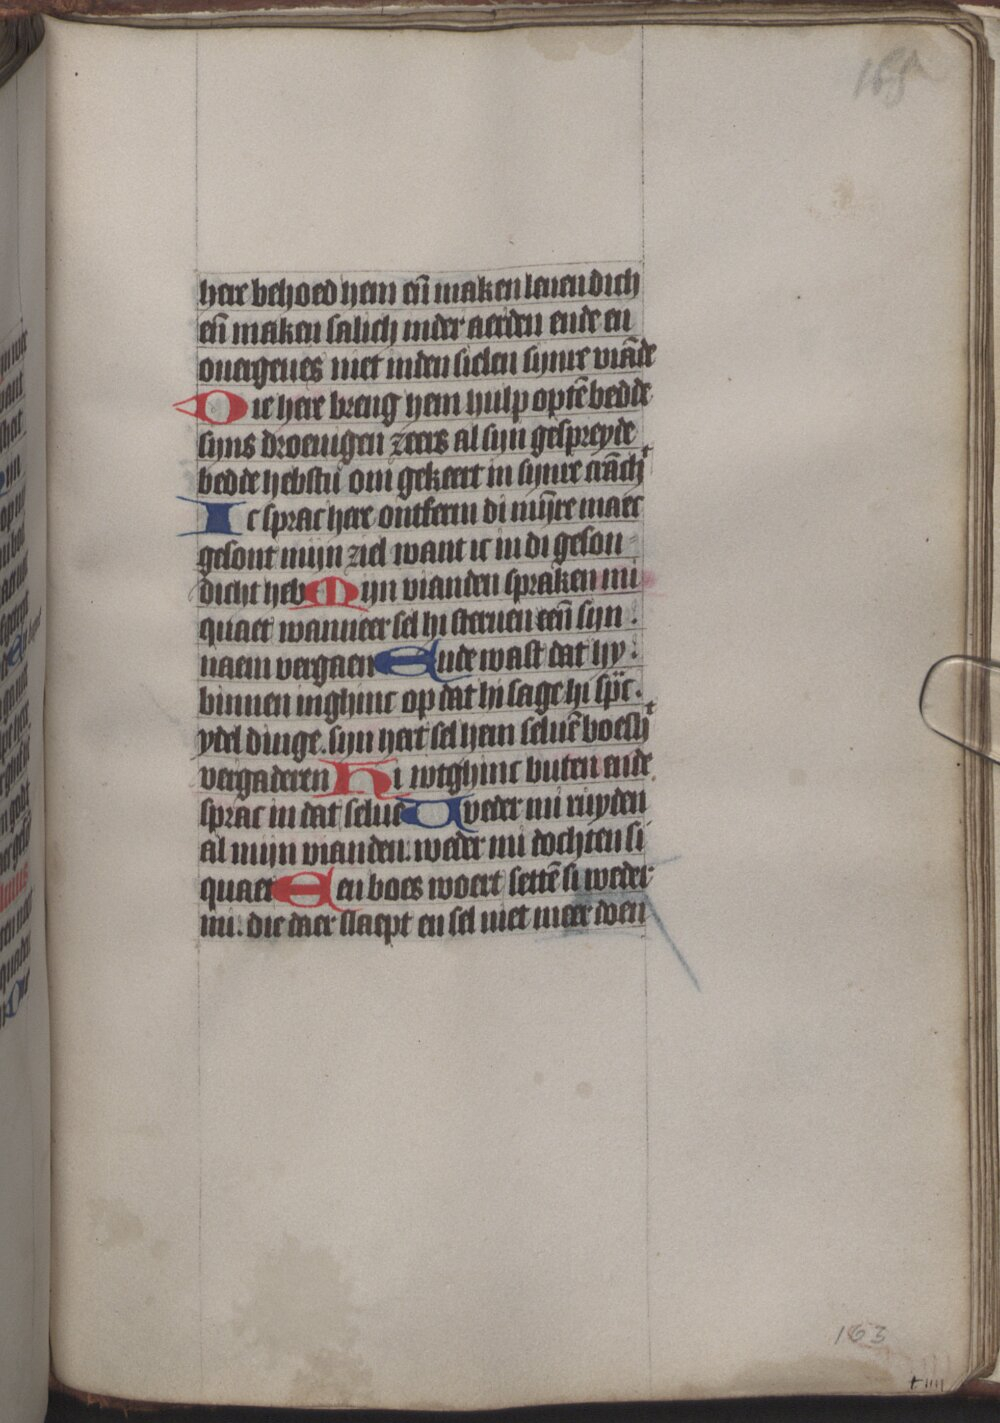 165a
here behoed hem eñ maken leuendich
eñ maken salich inder aerden ende en
ouergeues niet inden sielen synre viāde
Die here breng hem hulp optē bedde
syns droeuigen zeers al sijn gespreyde
bedde hebstu om gekeert in synre crāchᵗ
Ic sprac here ontferm di mijre maec
gesont mijn ziel want ic in di geson
dicht heb Mijn vianden spraken mi
quaet wanneer sel hi steruen eēn sijn
naem vergaen Ende wast dat hy
binnen inghinc op dat hi sage hi spc̄
ydel dinge. sijn hert sel hem seluē boesh
vergaderen Hi wtghinc buten ende
sprac in dat selue Weder mi ruyden
al mijn vianden. weder mi dochten si
quaet Een boes woert settē si weder
mi. die daer slaept en sel niet meer doen
163
t iiii